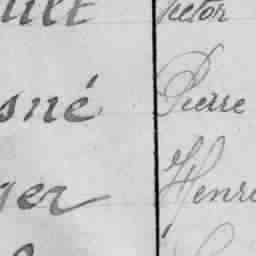 Victor
sné Pierre
ger Henri